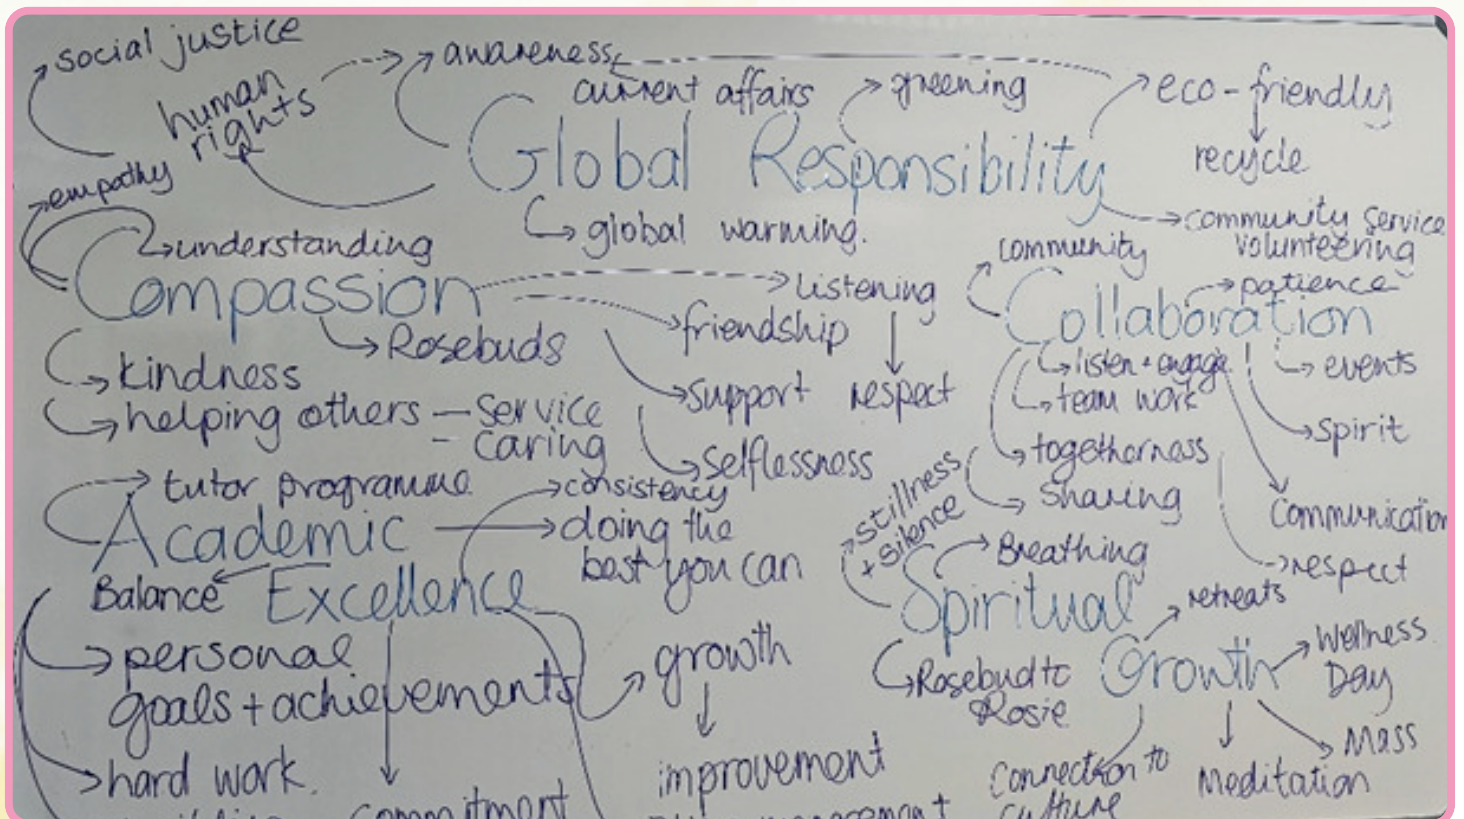 social justice
human
rights
awareness
current affairs
greening
eco-friendly
recycle
Global Responsibility
global warming.
community service
volunteering
empathy
understanding
Compassion
Rosebuds
kindness
helping others - service
- caring
Listening
respect
friendship
support
selflessness
community
Collaboration
patience
listen + engage
team work
togetherness
sharing
events
spirit
communication
respect
tutor programme
Academic
Excellence
Balance
consistency
doing the
best you can
personal
goals + achievements
hard work.
commitment
growth
improvement
stillness
+ silence
Breathing
Spiritual
Growth
retreats
Wellness
Day
Mass
Meditation
Rosebud to
Rosie
Connection to
culture